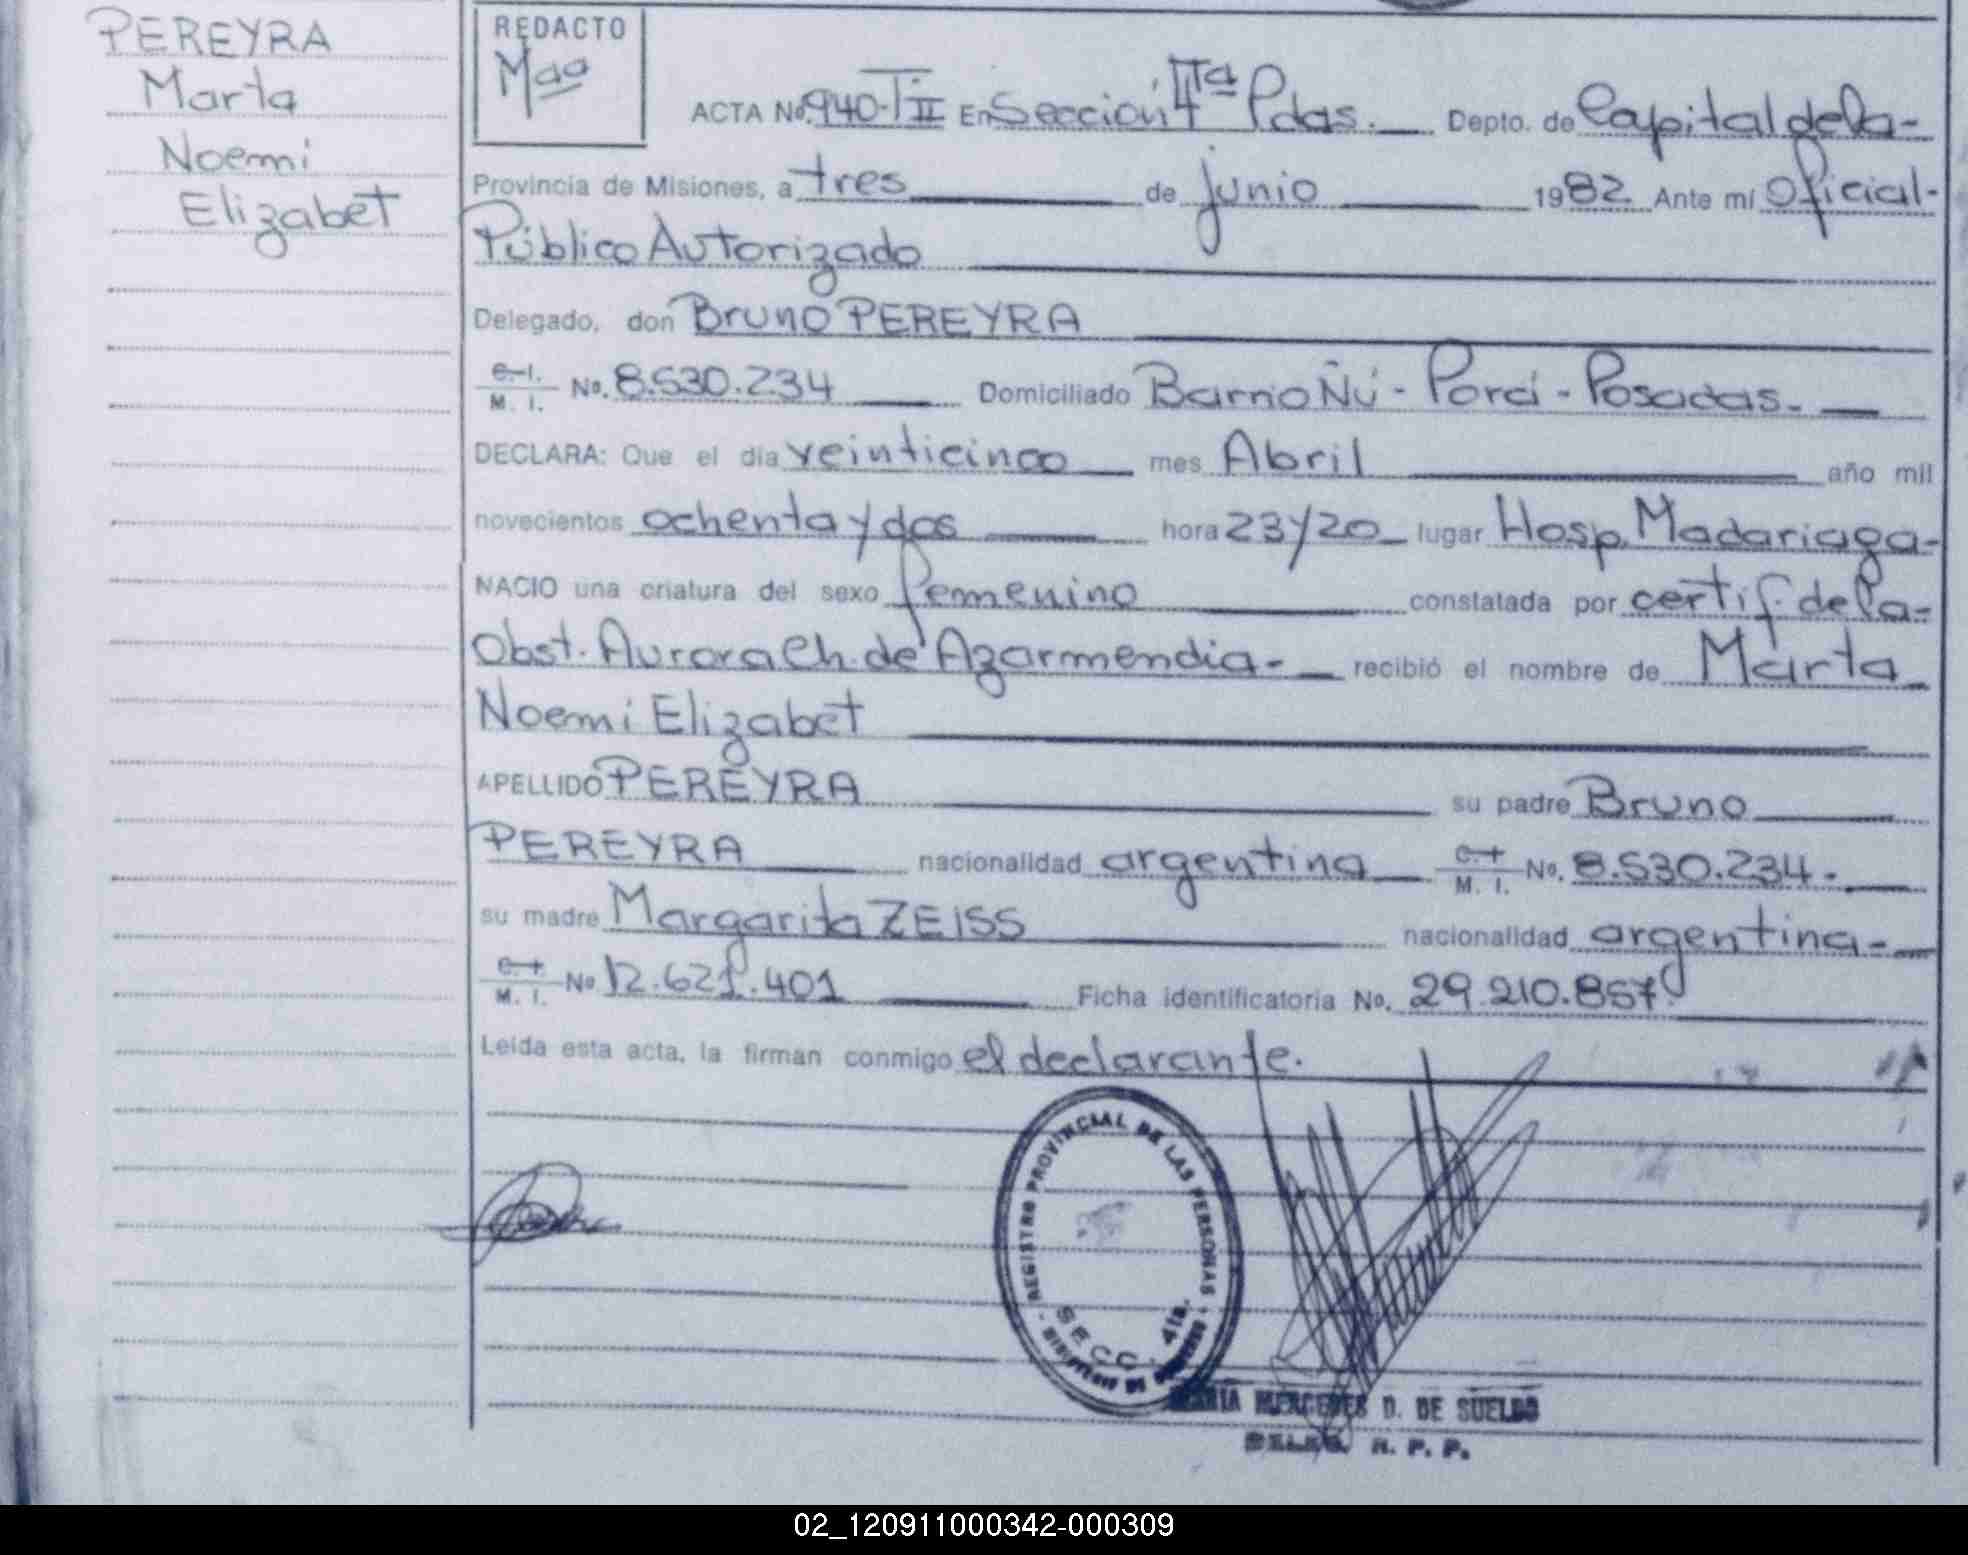 PEREYRA
Marta
Noemi
Elizabet
REDACTO
ACTA No. 940-T II En Sección 4ta Pdas. Depto. de Capital de la-
Provincia de Misiones, a tres de junio 1982 Ante mí Oficial-
Público Autorizado
Delegado, don Bruno PEREYRA
C. I. M. I. No. 8.530.234 Domiciliado Barrio Ñú - Porá - Posadas.
DECLARA: Que el día veinticinco mes Abril año mil
novecientos ochenta y dos hora 23y20 lugar Hosp. Madariaga-
NACIO una criatura del sexo femenino constatada por certif. de la-
Obst. Aurora Ch. de Azarmendia- recibió el nombre de Marta
Noemi Elizabet
APELLIDO PEREYRA su padre Bruno
PEREYRA nacionalidad argentina C. I. M. I. No. 8.530.234.
su madre Margarita ZEISS nacionalidad argentina-
C. I. M. I. No 12.621.401 Ficha identificatoria No. 29.210.857.
Leída esta acta, la firman conmigo el declarante.
REGISTRO PROVINCIAL DE LAS PERSONAS
SECC. 4ta.
MARIA MERCEDES D. DE SUELDO
DELEG. R. P. P.
02_120911000342-000309